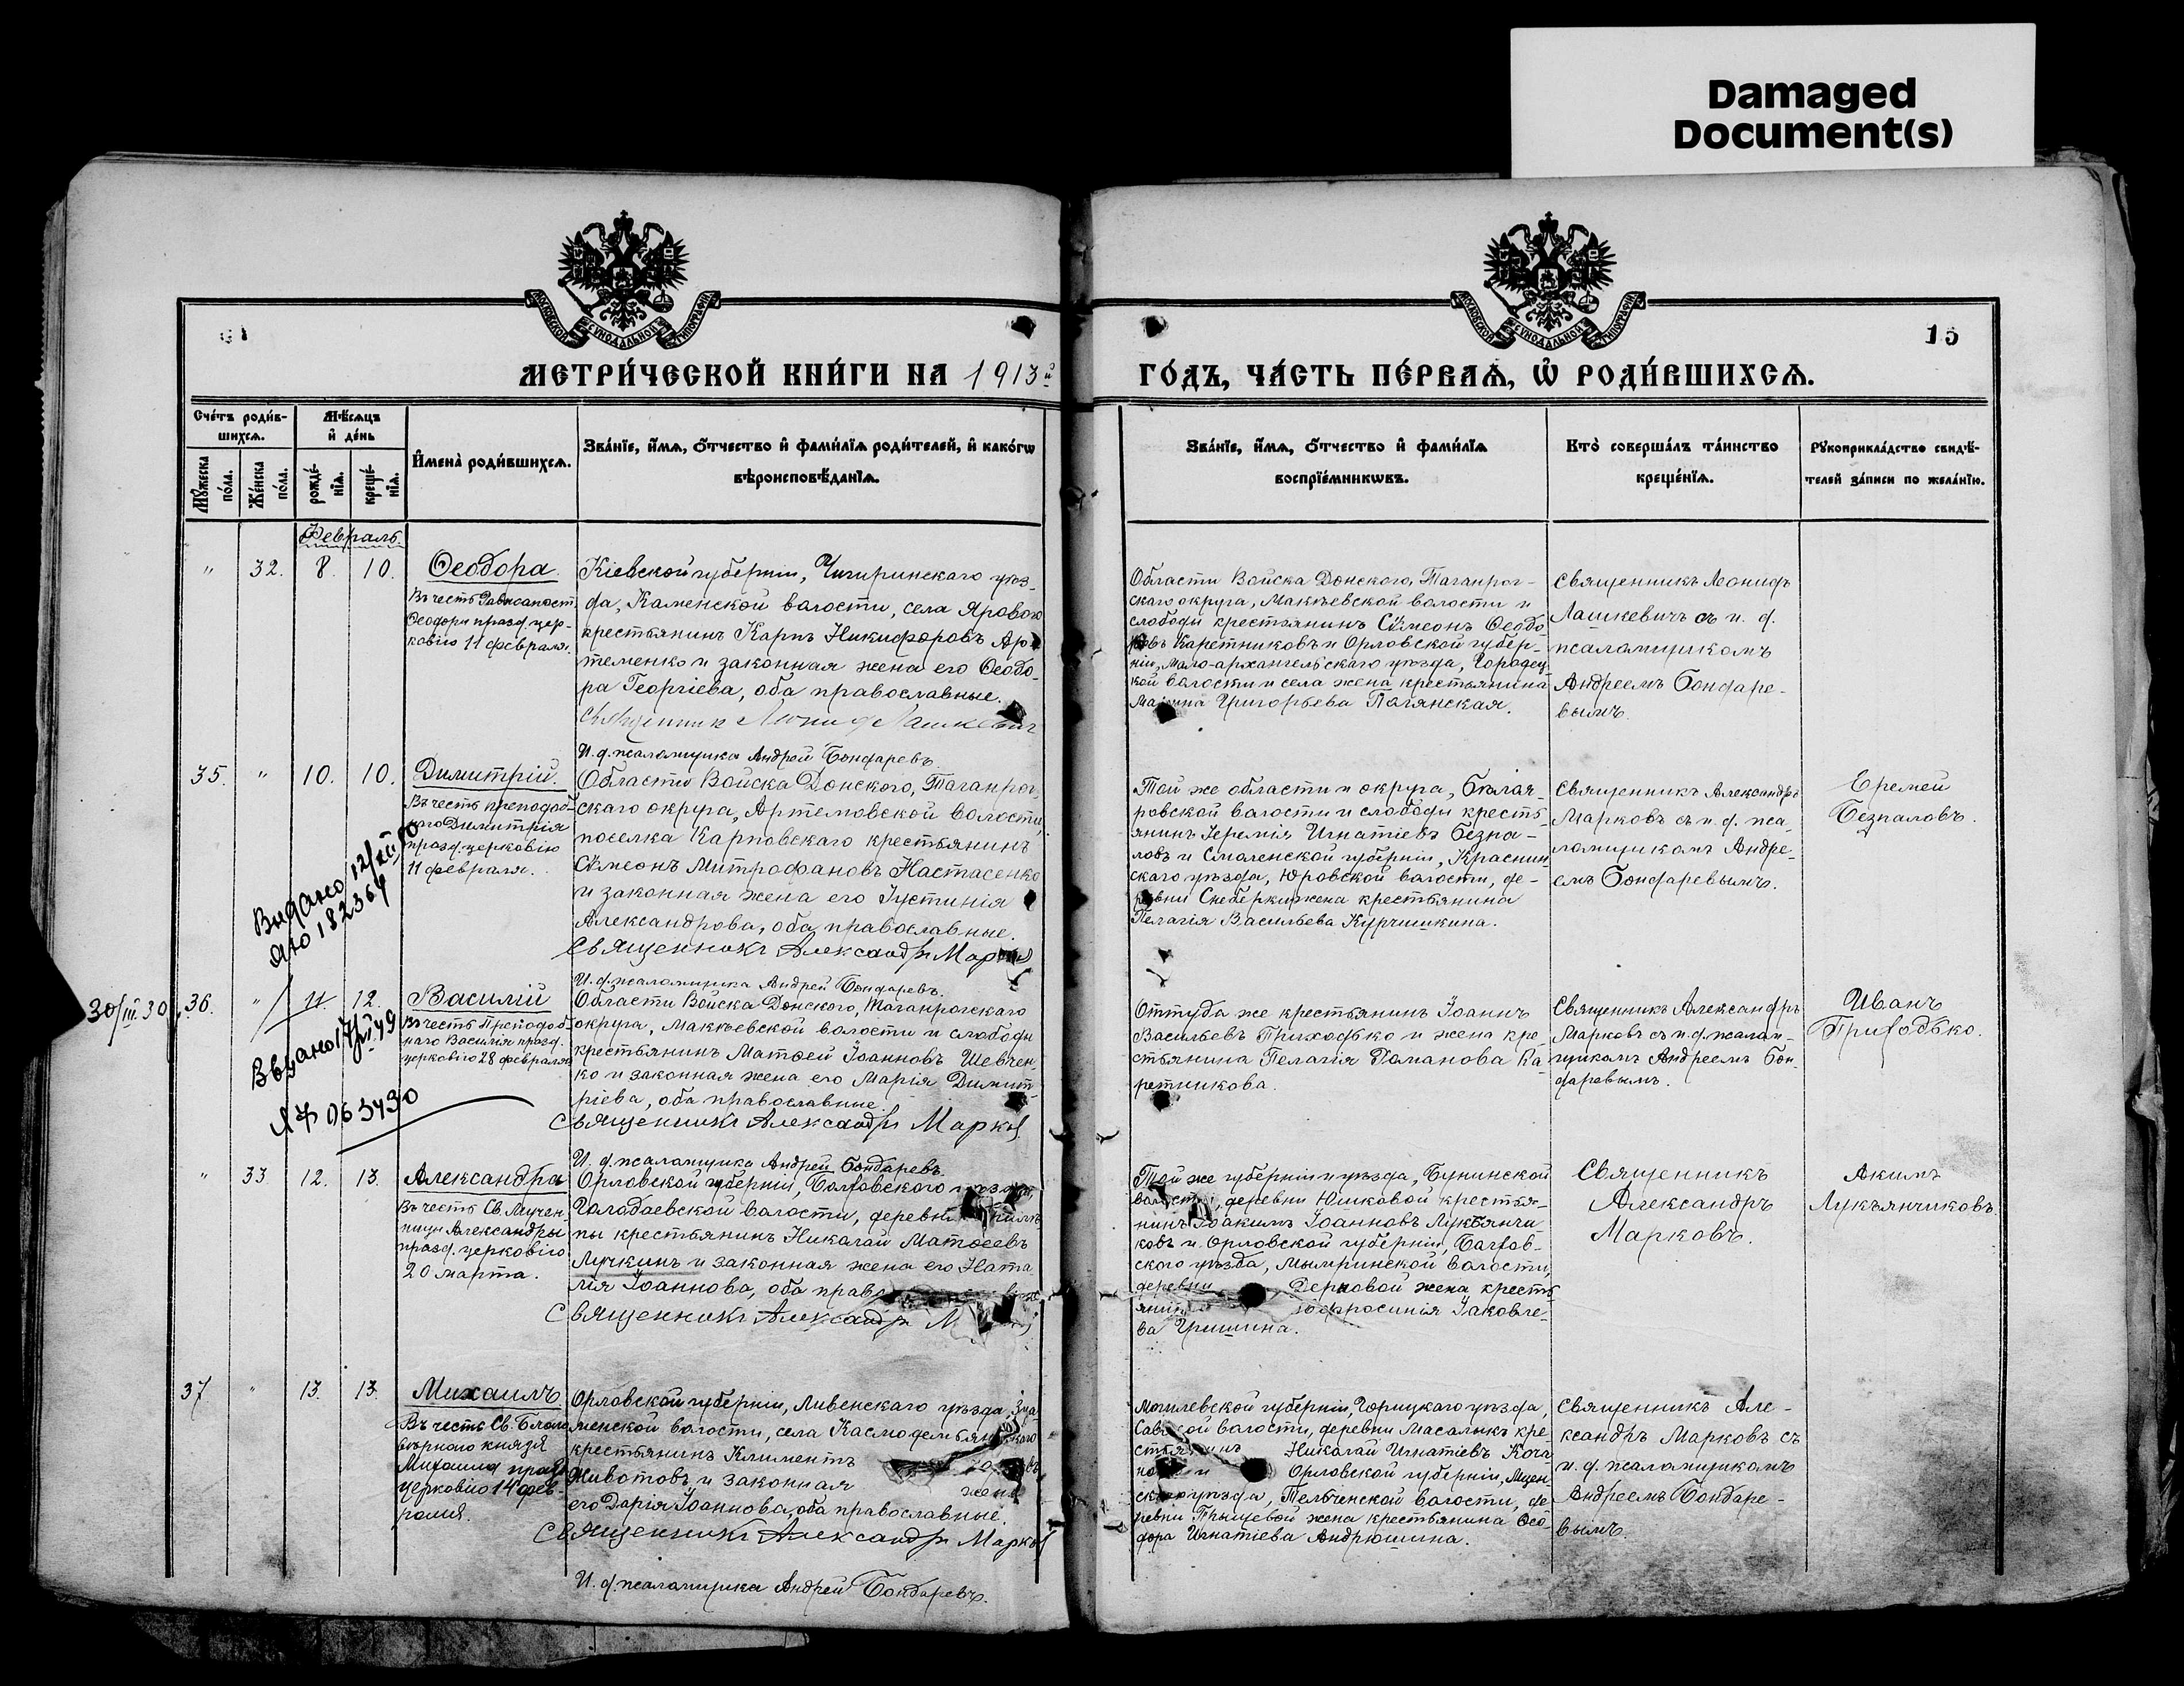 Damaged
Document(s)
МОСКОВСКОЙ СѴНОДАЛЬНОЙ ТИПОГРАФІИ
МОСКОВСКОЙ СѴНОДАЛЬНОЙ ТИПОГРАФІИ
15
МЕТРИ́ЧЕСКОЙ КНИ́ГИ НА 1913й
ГО́ДЪ, ЧА́СТЬ ПЕ́РВАѦ, Ѡ҆ РОДИ́ВШИХСѦ.
Сче́тъ роди́в-
шихсѧ.
Мѣ́сяцъ
и҆ де́нь
Мꙋ́жеска
по́ла.
Же́нска
по́ла.
рожде́-
нїѧ.
креще́-
нїѧ.
И҆мена̀ роди́вшихсѧ.
Зва́нїе, и҆́мѧ, ѻ҆́тчество и҆ фами́лїѧ роди́телей, и҆ како́гѡ
вѣроисповѣ́данїѧ.
Зва́нїе, и҆́мѧ, ѻ҆́тчество и҆ фами́лїѧ
воспрїе́мникѡвъ.
Кто̀ соверша́лъ та́инство
креще́нїѧ.
Рꙋкоприкла́дство свидѣ́-
телей за́писи по жела́нїю.
Февраль.
" 32. 8. 10.
Ѳеодора
Въ честь
Ѳеодоры празд. цер-
ковію 11 февраля.
Кіевской губерніи, Чигиринскаго уѣз-
да, Каменской волости, села Яроваго
крестьянинъ Карпъ Никифоровъ Ар-
теменко и законная жена его Ѳеодо-
ра Георгіева, оба православные.
Священник Леонид Лашкевич
И. д. псаломщика Андрей Бондаревъ.
Области Войска Донского, Таганрог-
скаго округа, Макѣевской волости и
слободы крестьянинъ Сѵмеонъ Ѳеодо-
ровъ Каретниковъ и Орловской губер-
ніи, Мало-архангельскаго уѣзда, Городец-
кой волости и села жена крестьянина
Марина Григорьева Погянская.
Священникъ Леонидъ
Лашкевичъ съ и. д.
псаломщикомъ
Андреемъ Бондаре-
вымъ.
35. " 10. 10.
Димитрій.
Въ честь преподоб-
наго Димитрія
празд. церковію
11 февраля.
Области Войска Донского, Таганрог-
скаго округа, Артемовской волости,
поселка Карповскаго крестьянинъ
Сѵмеонъ Митрофановъ Настасенко
и законная жена его Іустинія
Александрова, оба православные.
Священникъ Александръ Марковъ
И. д. псаломщика Андрей Бондаревъ.
Той же области и округа,
ровской волости и слободы кресть-
янинъ Іеремія Игнатіевъ Безпа-
ловъ и Смоленской губерніи, Краснин-
скаго уѣзда, Юровской волости, де-
ревни жена крестьянина
Пелагія Васильева Курчишкина.
Священникъ Александръ
Марковъ съ и. д. пса-
ломщикомъ Андре-
емъ Бондаревымъ.
Еремей
Безпаловъ.
Выдано 12/XII 50
ЯЮ 182364
30/III 30
36. " 11. 12.
Василій
Въ честь Преподоб-
наго Василія празд.
церковію 28 февраля.
Области Войска Донского, Таганрогскаго
округа, Макѣевской волости и слободы
крестьянинъ Матѳей Іоанновъ Шевчен-
ко и законная жена его Марія Димит-
ріева, оба православные.
Священникъ Александръ Марковъ
И. д. псаломщика Андрей Бондаревъ.
Оттуда же крестьянинъ Іоаннъ
Васильевъ Приходько и жена кре-
стьянина Пелагія Романова Ка-
ретникова.
Священникъ Александръ
Марковъ съ и. д. псалом-
щикомъ Андреемъ Бон-
даревымъ.
Иванъ
Приходько.
063430
" 33 12. 13.
Александра
Въ честь Св. Мучен-
ницы Александры
празд. церковію
20 марта.
Орловской губерніи, Болховского уѣзда,
Голодаевской волости, деревни
пы крестьянинъ Николай Матѳеевъ
Лучкинъ и законная жена его Ната-
лія Іоаннова, оба право
Священникъ Александръ М
Той же губерніи и уѣзда, Бунинской
волости, деревни Юшковой крестья-
нинъ Іоакимъ Іоанновъ Лукьянчи-
ковъ и Орловской губерніи, Болхов-
ского уѣзда, Мымринской волости,
деревни Дерновой жена кресть-
янина Іефросинія Іаковле-
ва Гришина.
Священникъ
Александръ
Марковъ.
Акимъ
Лукъянчиковъ
37 " 13. 13.
Михаилъ.
Въ честь Св. Благо-
вѣрнаго князя
Михаила празд.
церковію 14 фев-
раля.
Орловской губерніи, Ливенскаго уѣзда, Зна-
менской волости, села
крестьянинъ Климентъ
Животовъ и законная жена
его Дарія Іоаннова, оба православные.
Священникъ Александръ Марковъ
И. д. псаломщика Андрей Бондаревъ.
Могилевской губерніи, Горецкаго уѣзда,
Савской волости, деревни Масалыкъ кре-
стьянинъ Николай Игнатіевъ
и Орловской губерніи, Мцен-
скаго уѣзда, Тельченской волости, де-
ревни жена крестьянина Ѳео-
дора Игнатіева Андрюшина.
Священникъ Але-
ксандръ Марковъ съ
и. д. псаломщикомъ
Андреемъ Бондаре-
вымъ.